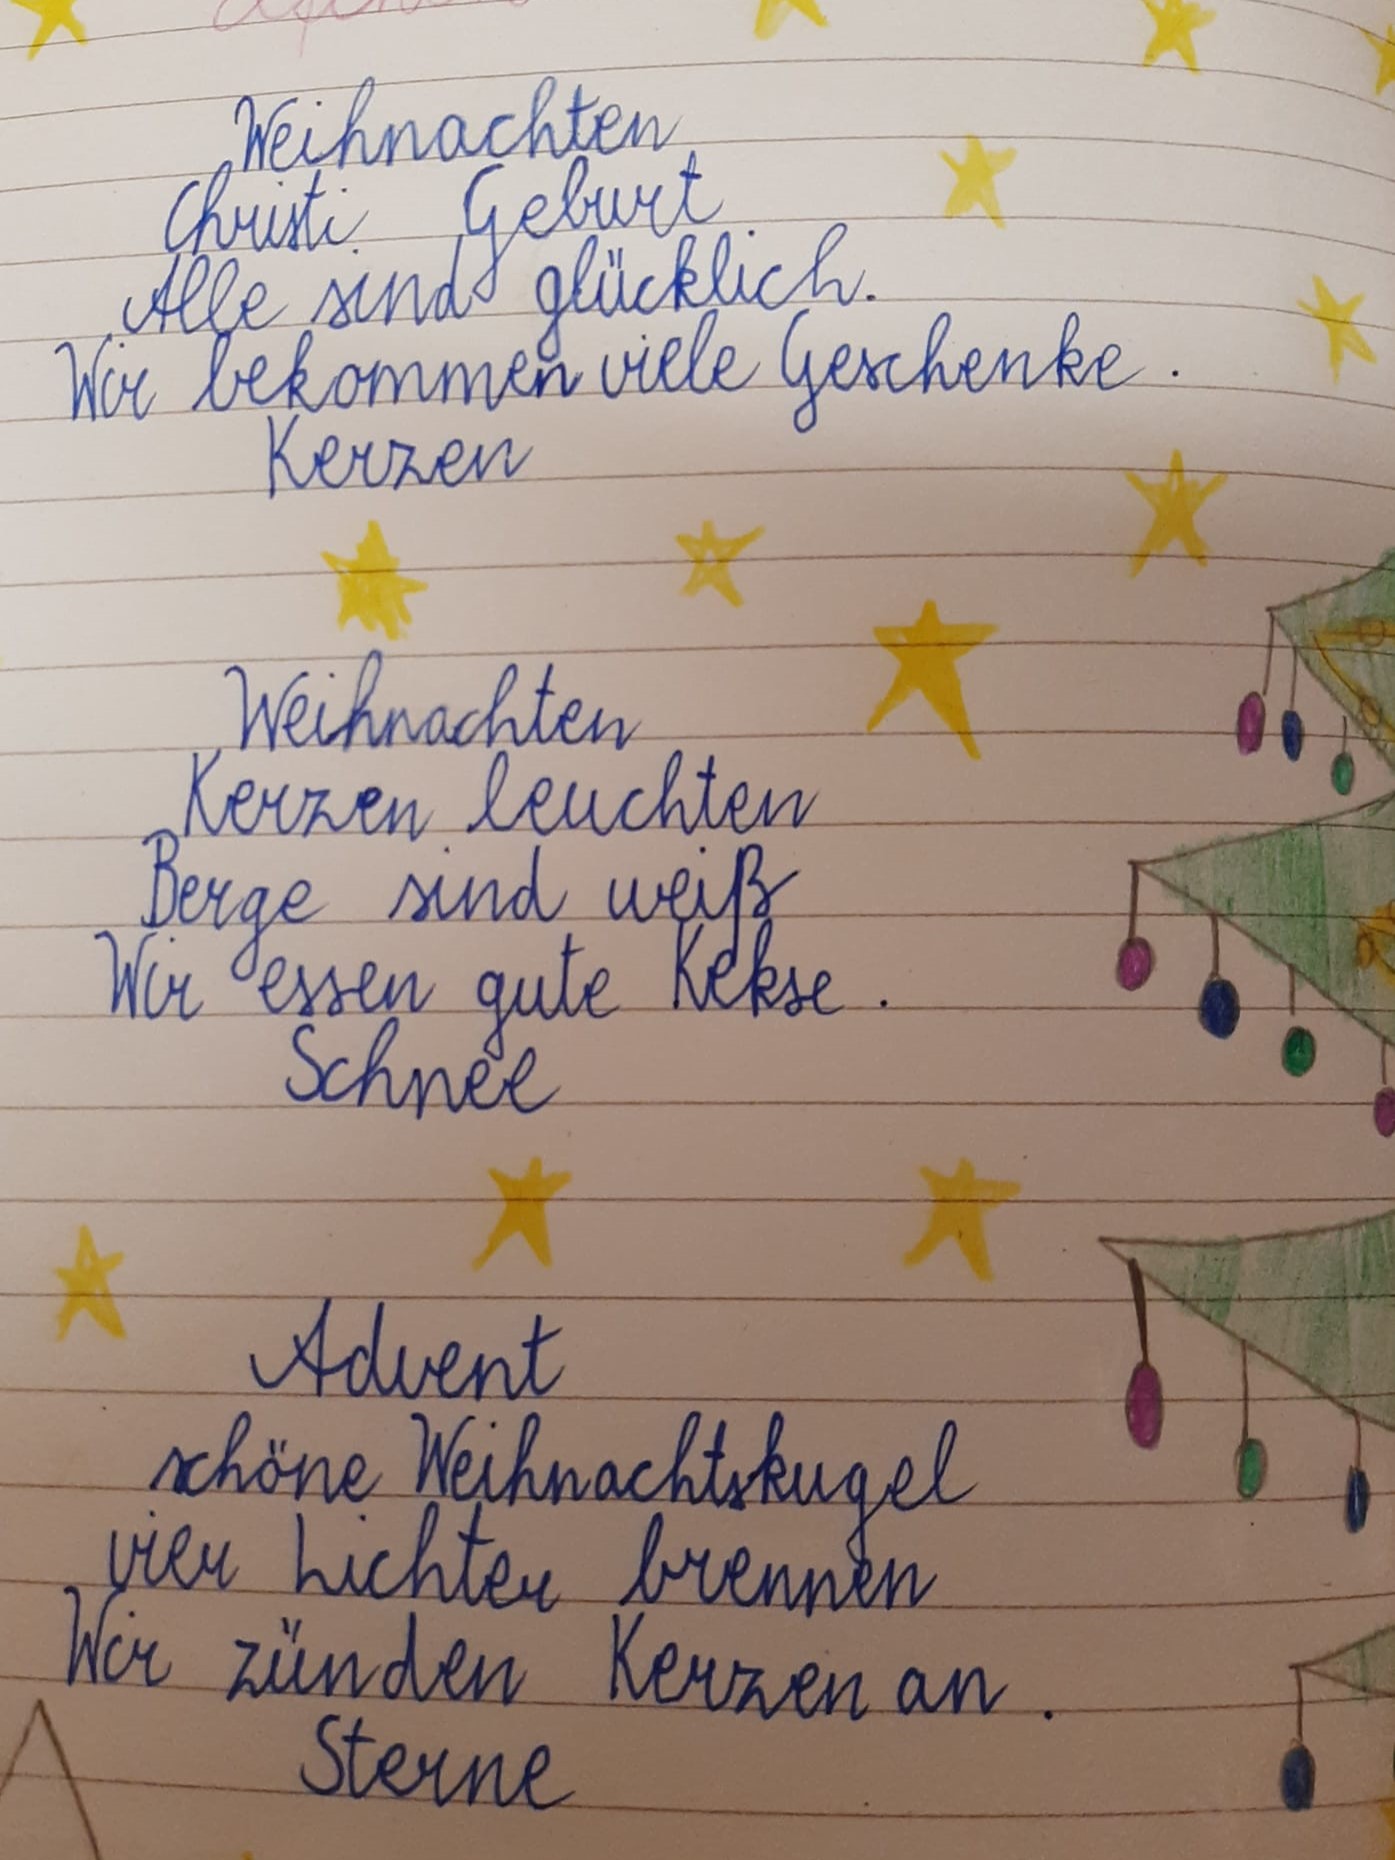 Weihnachten
Christi Geburt
Alle sind glücklich.
Wir bekommen viele Geschenke.
Kerzen
Weihnachten
Kerzen leuchten
Berge sind weiß
Wir essen gute Kekse.
Schnee
Advent
schöne Weihnachtskugel
vier Lichter brennen
Wir zünden Kerzen an.
Sterne